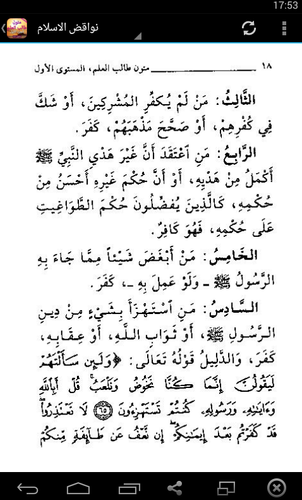 17:53
نواقض الاسلام
١٨ متون طالب العلم، المستوى الأول
الثَّالِثُ: مَنْ لَمْ يُكَفِّرِ المُشْرِكِينَ، أَوْ شَكَّ
فِي كُفْرِهِمْ، أَوْ صَحَّحَ مَذْهَبَهُمْ، كَفَرَ.
الرَّابِعُ: مَنِ اعْتَقَدَ أَنَّ غَيْرَ هَدْيِ النَّبِيِّ ﷺ
أَكْمَلُ مِنْ هَدْيِهِ، أَوْ أَنَّ حُكْمَ غَيْرِهِ أَحْسَنُ مِنْ
حُكْمِهِ، كَالَّذِينَ يُفَضِّلُونَ حُكْمَ الطَّوَاغِيتِ
عَلَى حُكْمِهِ، فَهُوَ كَافِرٌ.
الخَامِسُ: مَنْ أَبْغَضَ شَيْئاً مِمَّا جَاءَ بِهِ
الرَّسُولُ ﷺ - وَلَوْ عَمِلَ بِهِ -، كَفَرَ.
السَّادِسُ: مَنِ اسْتَهْزَأَ بِشَيْءٍ مِنْ دِينِ
الرَّسُولِ ﷺ، أَوْ ثَوَابِ اللَّهِ، أَوْ عِقَابِهِ،
كَفَرَ، وَالدَّلِيلُ قَوْلُهُ تَعَالَى: ﴿وَلَئِن سَأَلْتَهُمْ
لَيَقُولُنَّ إِنَّمَا كُنَّا نَخُوضُ وَنَلْعَبُ قُلْ أَبِاللَّهِ
وَءَايَاتِهِ وَرَسُولِهِ كُنتُمْ تَسْتَهْزِءُونَ ٦٥ لَا تَعْتَذِرُوا
قَدْ كَفَرْتُم بَعْدَ إِيمَانِكُمْ إِن نَّعْفُ عَن طَائِفَةٍ مِّنكُمْ